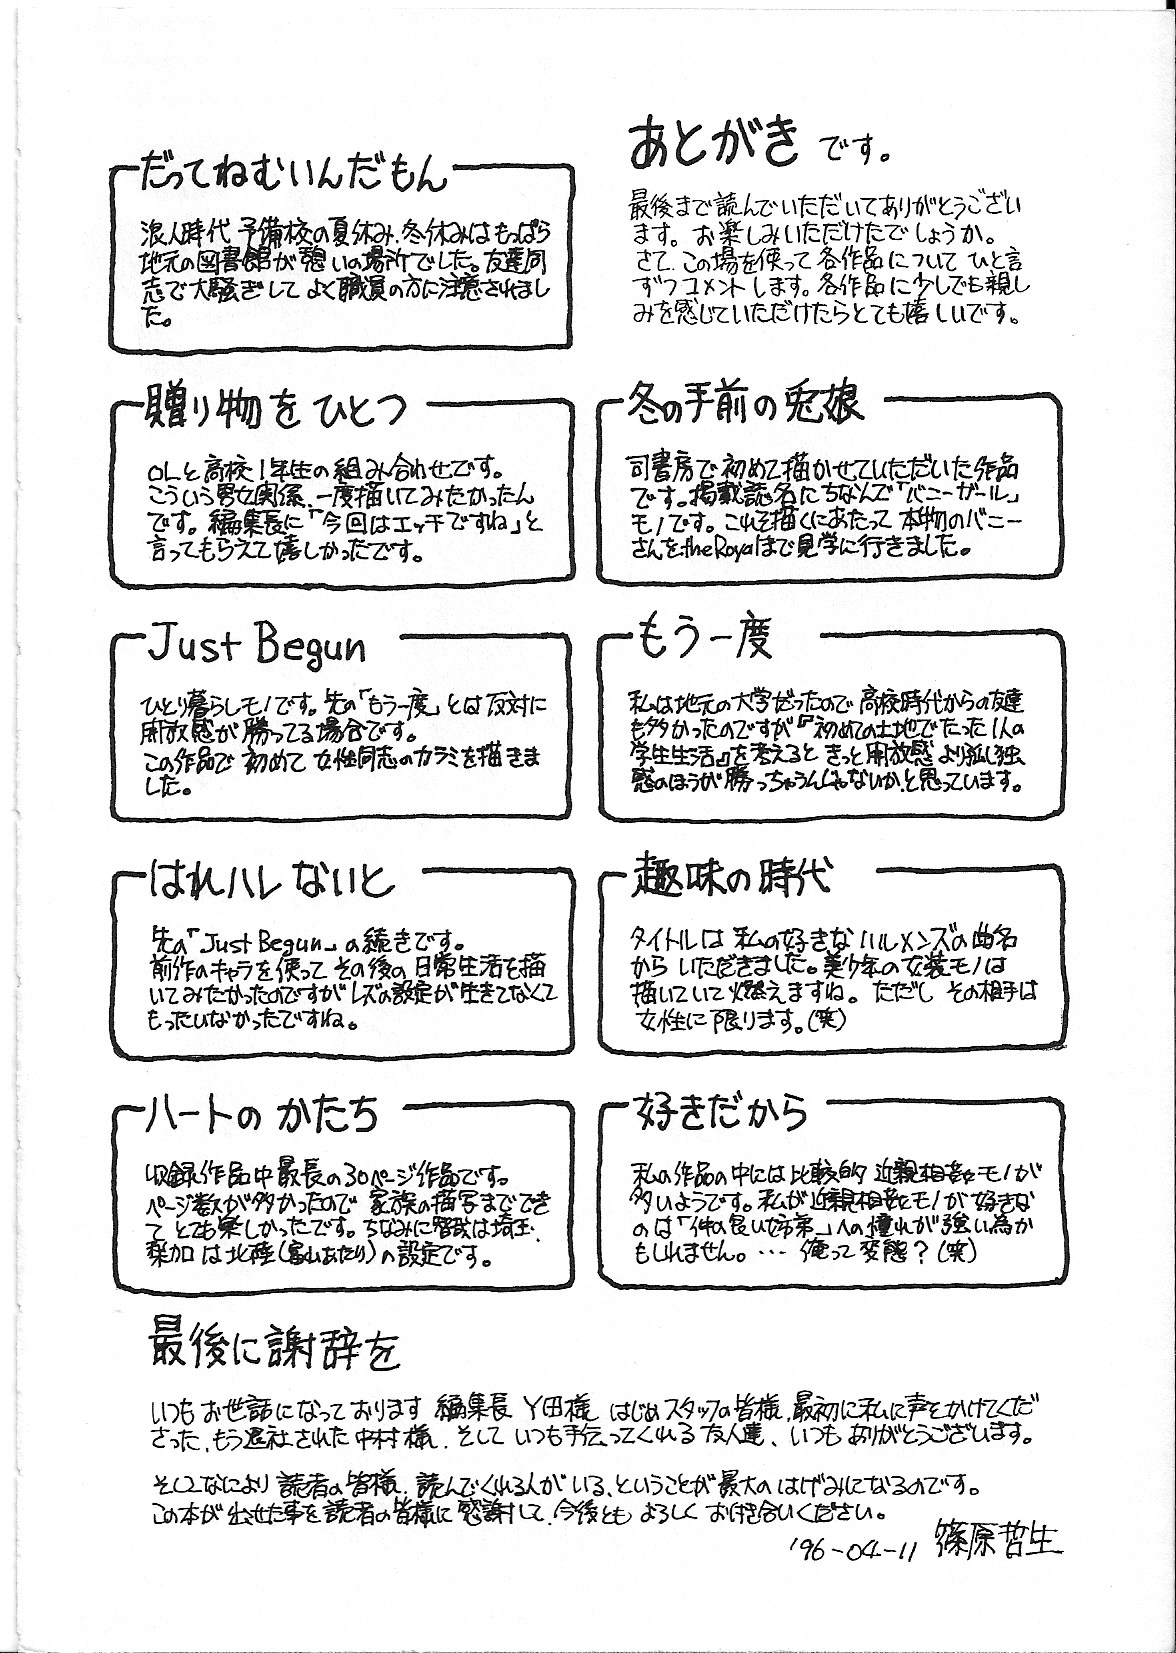 あとがき です。
最後まで読んでいただいてありがとうござい
ます。お楽しみいただけたでしょうか。
さて、この場を使って各作品について ひと言
ずつコメントします。各作品に少しでも親し
みを感じていただけたらとても嬉しいです。
だってねむいんだもん
浪人時代 予備校の夏休み、冬休みはもっぱら
地元の図書館が憩いの場所でした。友達同
志で大騒ぎして よく職員の方に注意されまし
た。
冬の手前の兎娘
司書房で初めて描かせていただいた作品
です。掲載誌名にちなんで「バニーガール」
モノです。これを描くにあたって 本物のバニー
さんをtheRoyalまで見学に行きました。
贈り物を ひとつ
OLと高校1年生の組み合わせです。
こういう男女関係、一度描いてみたかったん
です。編集長に「今回はエッチですね」と
言ってもらえて嬉しかったです。
もう一度
私は地元の大学だったので 高校時代からの友達
も多かったのですが『初めての土地でたった1人の
学生生活』を考えると きっと開放感より孤独
感のほうが勝っちゃうんじゃないか、と思っています。
Just Begun
ひとり暮らしモノです。先の「もう一度」とは反対に
開放感が勝ってる場合です。
この作品で 初めて 女性同志のカラミを描きま
した。
趣味の時代
タイトルは 私の好きな ハルメンズの曲名
から いただきました。美少年の女装モノは
描いていて燃えますね。ただし その相手は
女性に限ります。(笑)
はれハレ ないと
先の「Just Begun」の続きです。
前作のキャラを使って その後の日常生活を描
いてみたかったのですが レズの設定が生きてなくて
もったいなかったですね。
好きだから
私の作品の中には比較的 近親相姦モノが
多いようです。私が近親相姦モノが好きな
のは「仲の良い姉弟」への憧れが強い為か
もしれません。… 俺って変態?(笑)
ハートの かたち
収録作品中最長の30ページ作品です。
ページ数が多かったので 家族の描写までできて
て とても楽しかったです。ちなみに は埼玉、
梨加は北陸(富山あたり)の設定です。
最後に謝辞を
いつもお世話になっております 編集長 Y田様 はじめスタッフの皆様、最初に私に声をかけてくだ
さった、もう退社された中村様、そして いつも手伝ってくれる友人達、いつもありがとうございます。
そしてなにより 読者の皆様、読んでくれる人がいる、ということが最大の はげみになるのです。
この本が出せた事を読者の皆様に感謝して、今後とも よろしく お付き合いください。
'96-04-11 篠原哲生